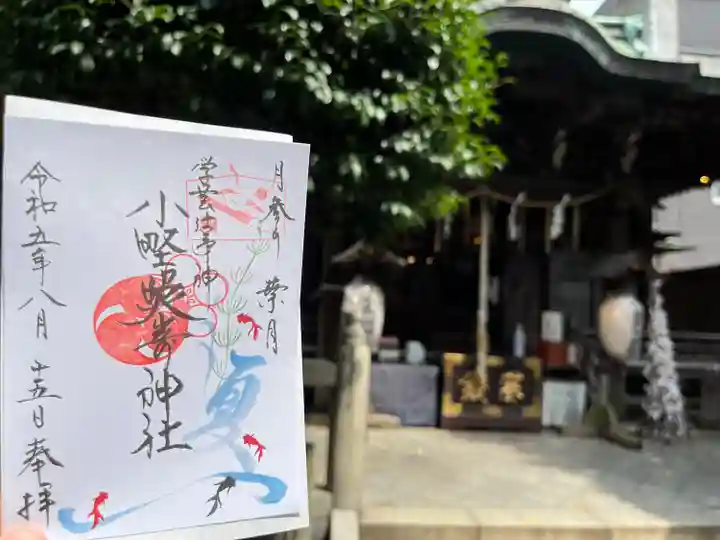 月参り 葉月
学芸の神
小野照崎神社
夏
令和五年八月十五日奉拝